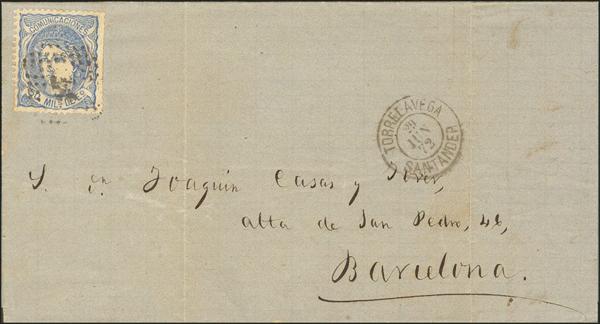 COMUNICACIONES
50 MILS DE Eº
TORRELAVEGA
29
JUN
72
SANTANDER
S. en Joaquin Casas y
alta de San Pedro, 46,
Barcelona.